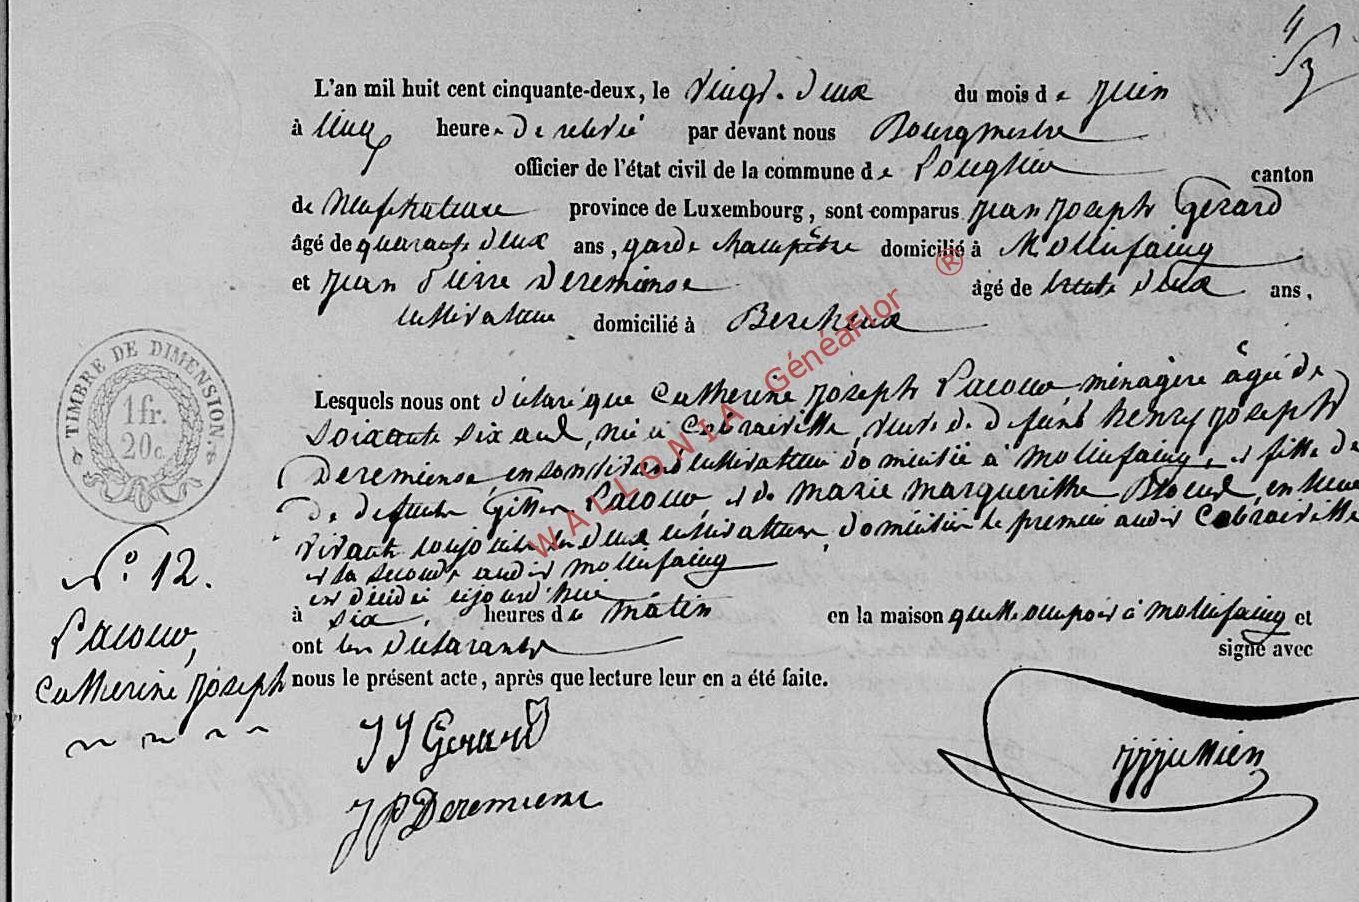 4
/3
L'an mil huit cent cinquante-deux, le vingt-deux du mois de juin
à cinq heures de relevée par devant nous Bourgmestre
officier de l'état civil de la commune de canton
de Neufchateau province de Luxembourg, sont comparus Jean Joseph Gerard
âgé de quarante deux ans, garde champêtre domicilié à Molinfaing
et Jean Pierre Deremiense âgé de trente deux ans,
cultivateur domicilié à Bercheux
Lesquels nous ont déclaré que Catherine Joseph Pacouw, ménagère âgée de
soixante six ans, née à Cobraiville, veuve de défunt henry Joseph
Deremiense, en son vivant cultivateur domicilié à Molinfaing, et fille de
de défunts Pacouw, et de marie marguerithe
vivants deux cultivateurs, domiciliés le premier audit Cobraiville
et la seconde audit Molinfaing
est décédée aujourd'hui
à six heures du matin en la maison quelle occupait à Molinfaing et
ont les déclarants signé avec
nous le présent acte, après que lecture leur en a été faite.
TIMBRE DE DIMENSION.
1 fr.
20 c.
N° 12.
Pacouw,
Catherine Joseph
JJ Gerard
JP Deremiense
WALLONIA GénéaFlor ®